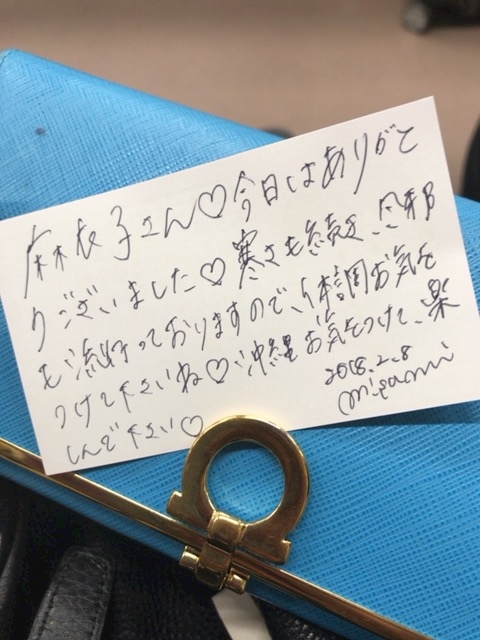 麻衣子さん♡今日はありがと
うございました♡寒さも続き、風邪
も流行っておりますので、体調お気を
つけて下さいね♡沖縄お気をつけて、楽
しんで下さい♡
2018.2.8